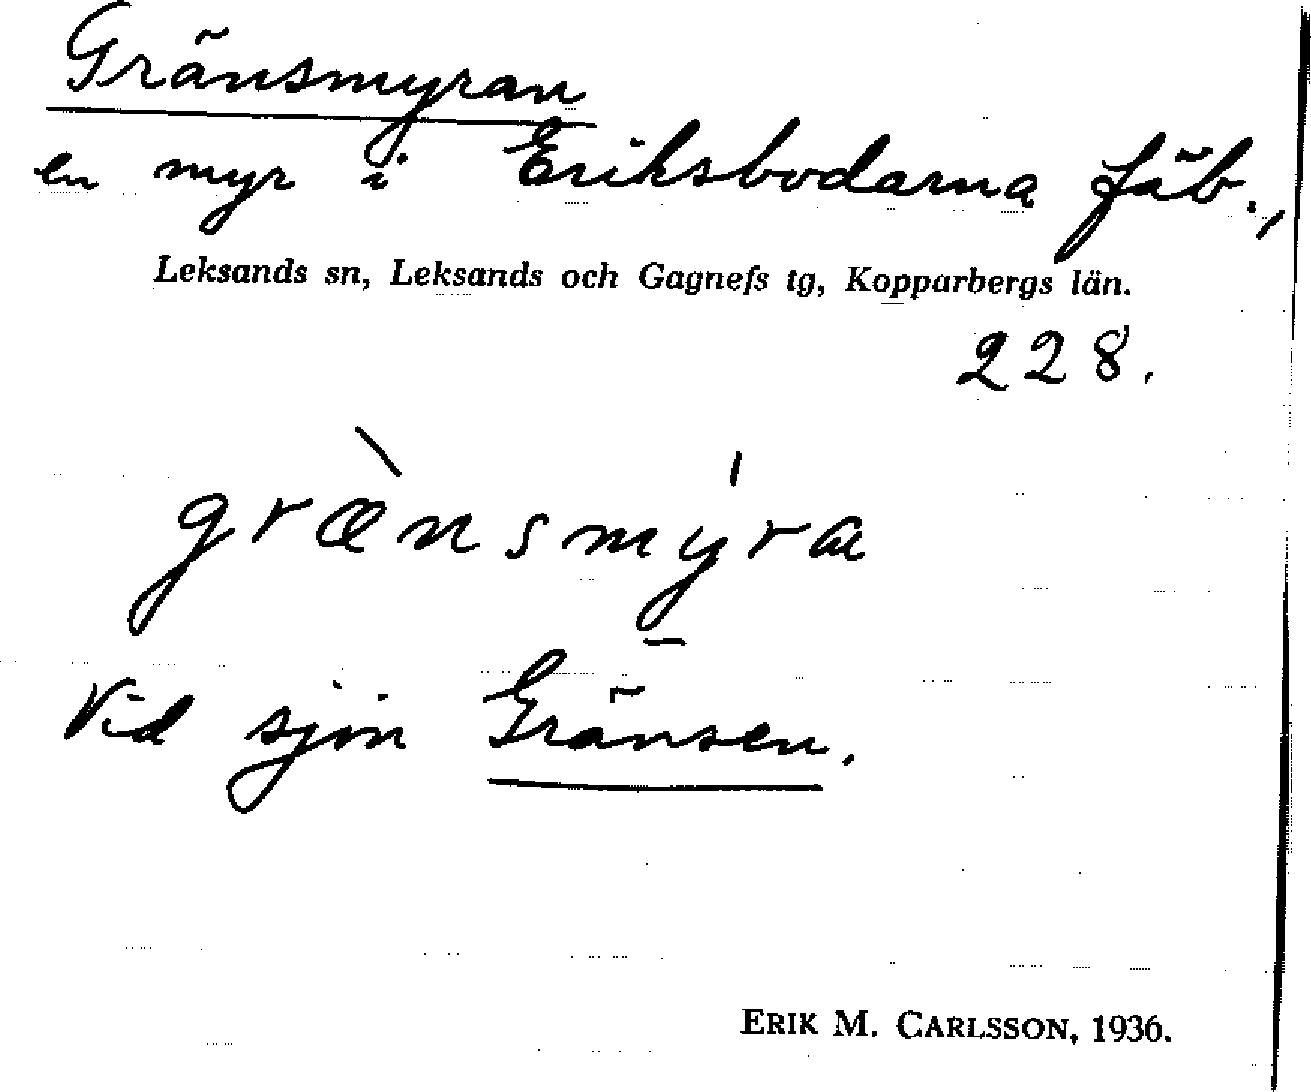 Gränsmyran
en myr i Eriksbodarna fäb.,
Leksands sn, Leksands och Gagnefs tg, Kopparbergs län.
228.
grænsmyra
Vid sjön Gränsen.
ERIK M. CARLSSON, 1936.